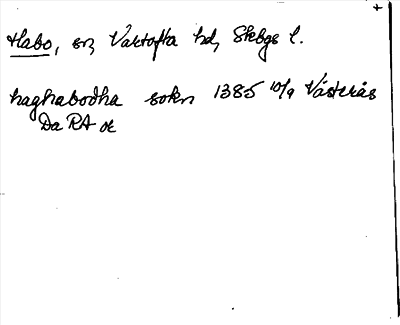 +
Habo, sn, Vartofta hd, Skbgs l.
haghabodha sokn 1385 10/9 Västerås
Da RA or